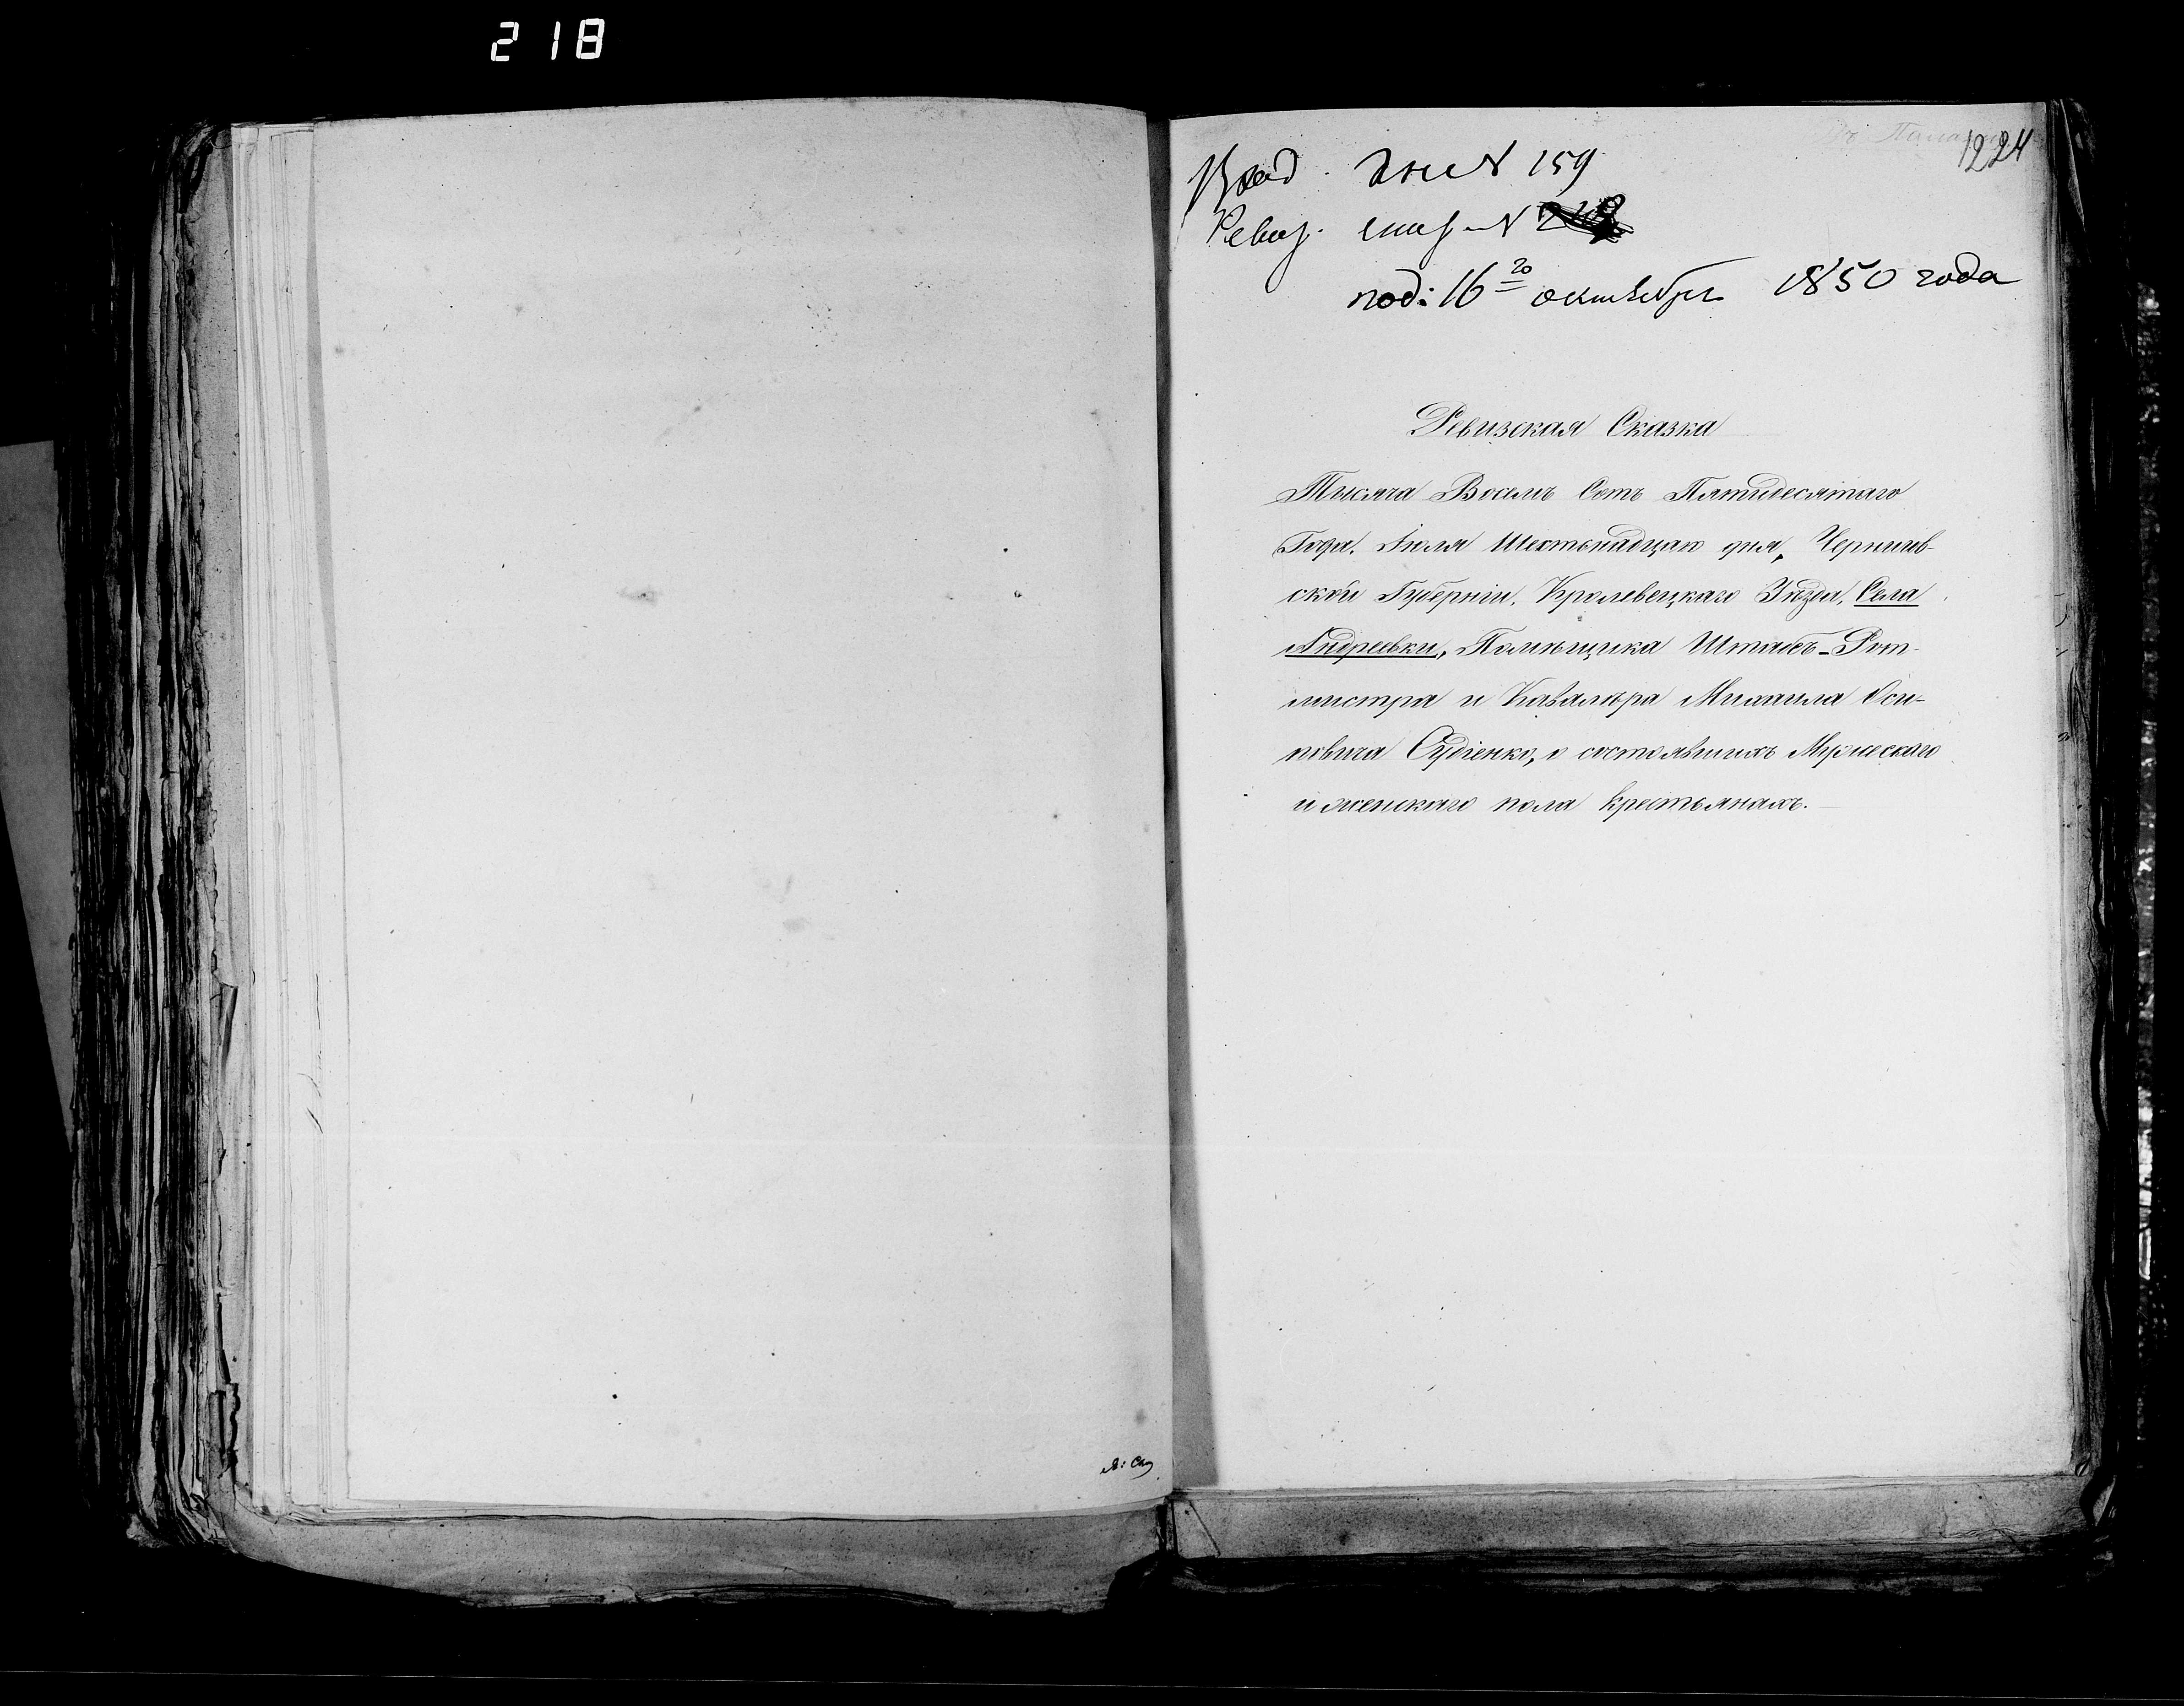 218
1224
Вход. Дне № 159
Ревиз. №
под: 16го октября 1850 года
Ревизская Сказка
Тысяча Восемь Сотъ Пятидесятаго
Года. Іюля Шестьнадцаго дня, Чернигов-
ской Губерніи, Кролевецкаго Уѣзда, Села
Андреевки, Помѣщика Штабъ-Рот-
мистра и Кавалѣра Михаила Оси-
повича Судіенко, о состоявшихъ Мужескаго
и женскаго пола крестьянахъ.